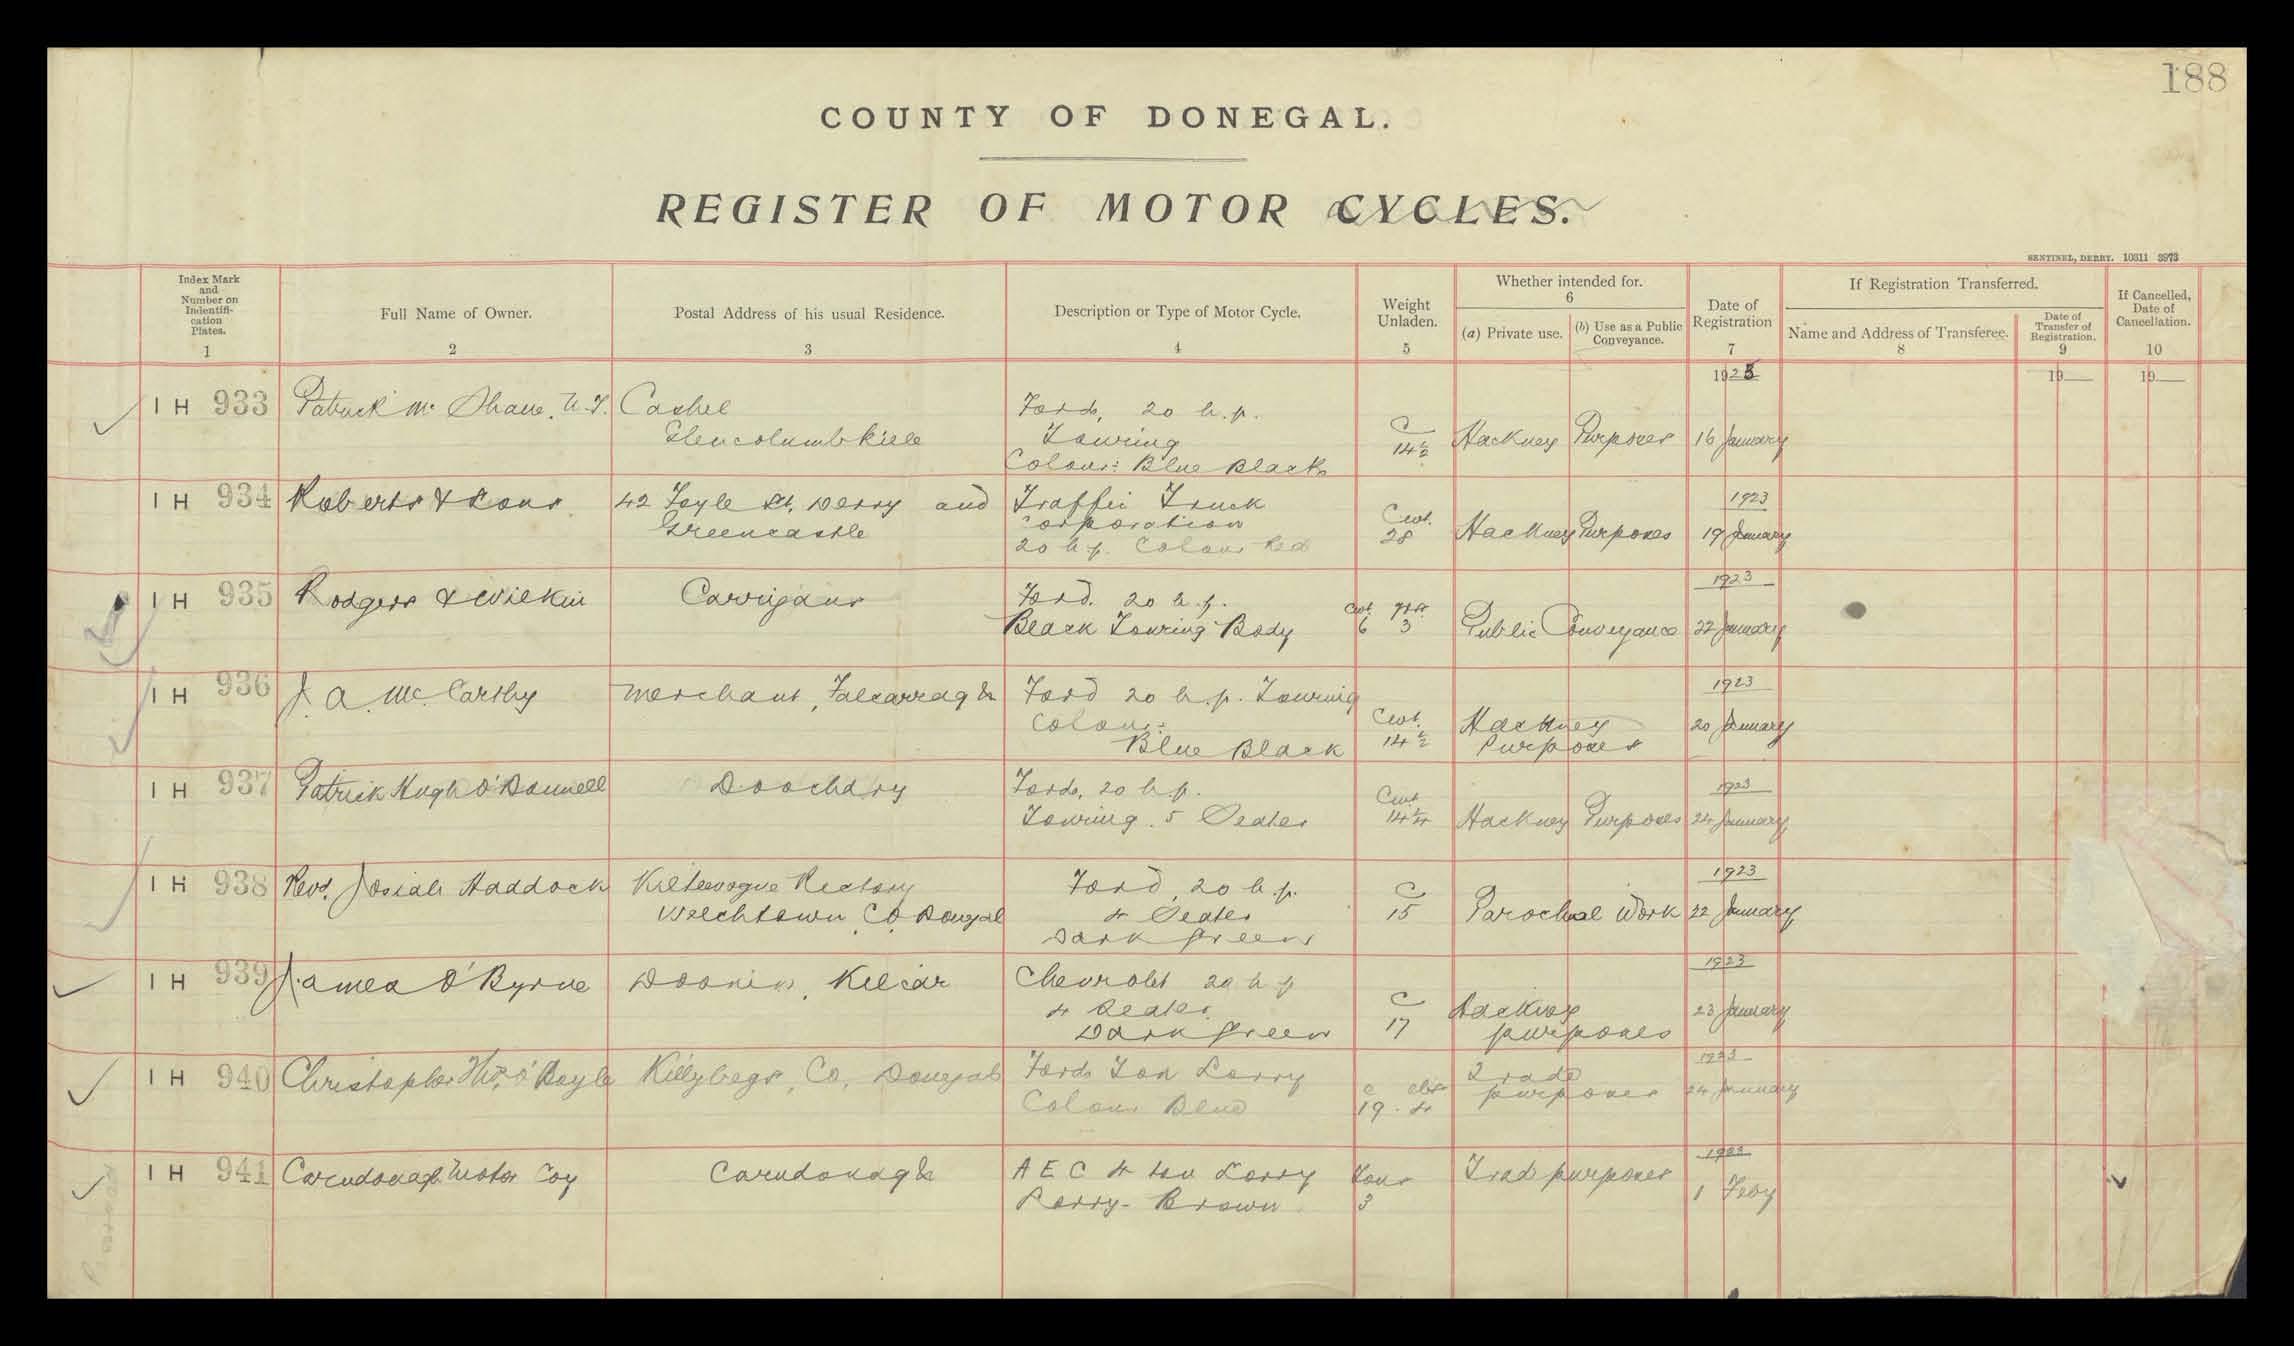 188
COUNTY OF DONEGAL.
REGISTER OF MOTOR CYCLES.
SENTINEL, DERRY. 10311 3973
Index Mark
and
Number on
Indentifi-
cation
Plates.
1
Full Name of Owner.
2
Postal Address of his usual Residence.
3
Description or Type of Motor Cycle.
4
Weight
Unladen.
5
Whether intended for.
6
(a) Private use.
(b) Use as a Public
Conveyance.
Date of
Registration
7
If Registration Transferred.
Name and Address of Transferee.
8
Date of
Transfer of
Registration.
9
If Cancelled,
Date of
Cancellation.
10
1923
19
19
I H 933 Patrick Mc Shane, N.T. Cashel Ford, 20 h.p.
Glencolumbkille Touring C 14½ Hackney Purposes 16 January
Colour: Blue Black
I H 934 Roberts & Sons 42 Foyle St. Derry and Traffic Truck 1923
Greencastle Corporation Cwt. 28 Hackney Purposes 19 January
20 h.p. Colour Red
1923
I H 935 Rodgers & Wilkin Carrigans Ford. 20 h.p. Cwt. qrs.
Black Touring Body 6 3 Public Conveyance 22 January
1923
I H 936 J. A. Mc. Carthy Merchant, Falcarragh Ford 20 h.p. Touring
Colour: Cwt. Hackney 20 January
Blue Black 14½ Purposes
1923
I H 937 Patrick Hugh O'Donnell Doochary Ford, 20 h.p. Cwt.
Touring. 5 Seater 14¼ Hackney Purposes 24 January
1923
I H 938 Revd. Josiah Haddock Kilteevogue Rectory Ford, 20 h.p. C
Welchtown, Co. Donegal 4 Seater 15 Parochial Work 22 January
Dark Green
1923
I H 939 James O'Byrne Doonin, Kilcar Chevrolet 20 h p
4 Seater C Hackney 23 January
Dark Green 17 purposes
1923
I H 940 Christopher Thos. O'Boyle Killybegs, Co. Donegal Ford Ton Lorry Trade
Colour Blue 19 . 4 purposes 24 January
1923
I H 941 Carndonagh Motor Coy Carndonagh A E C 4 ton Lorry Tons Trade purposes
Lorry - Brown 3 1 Feby